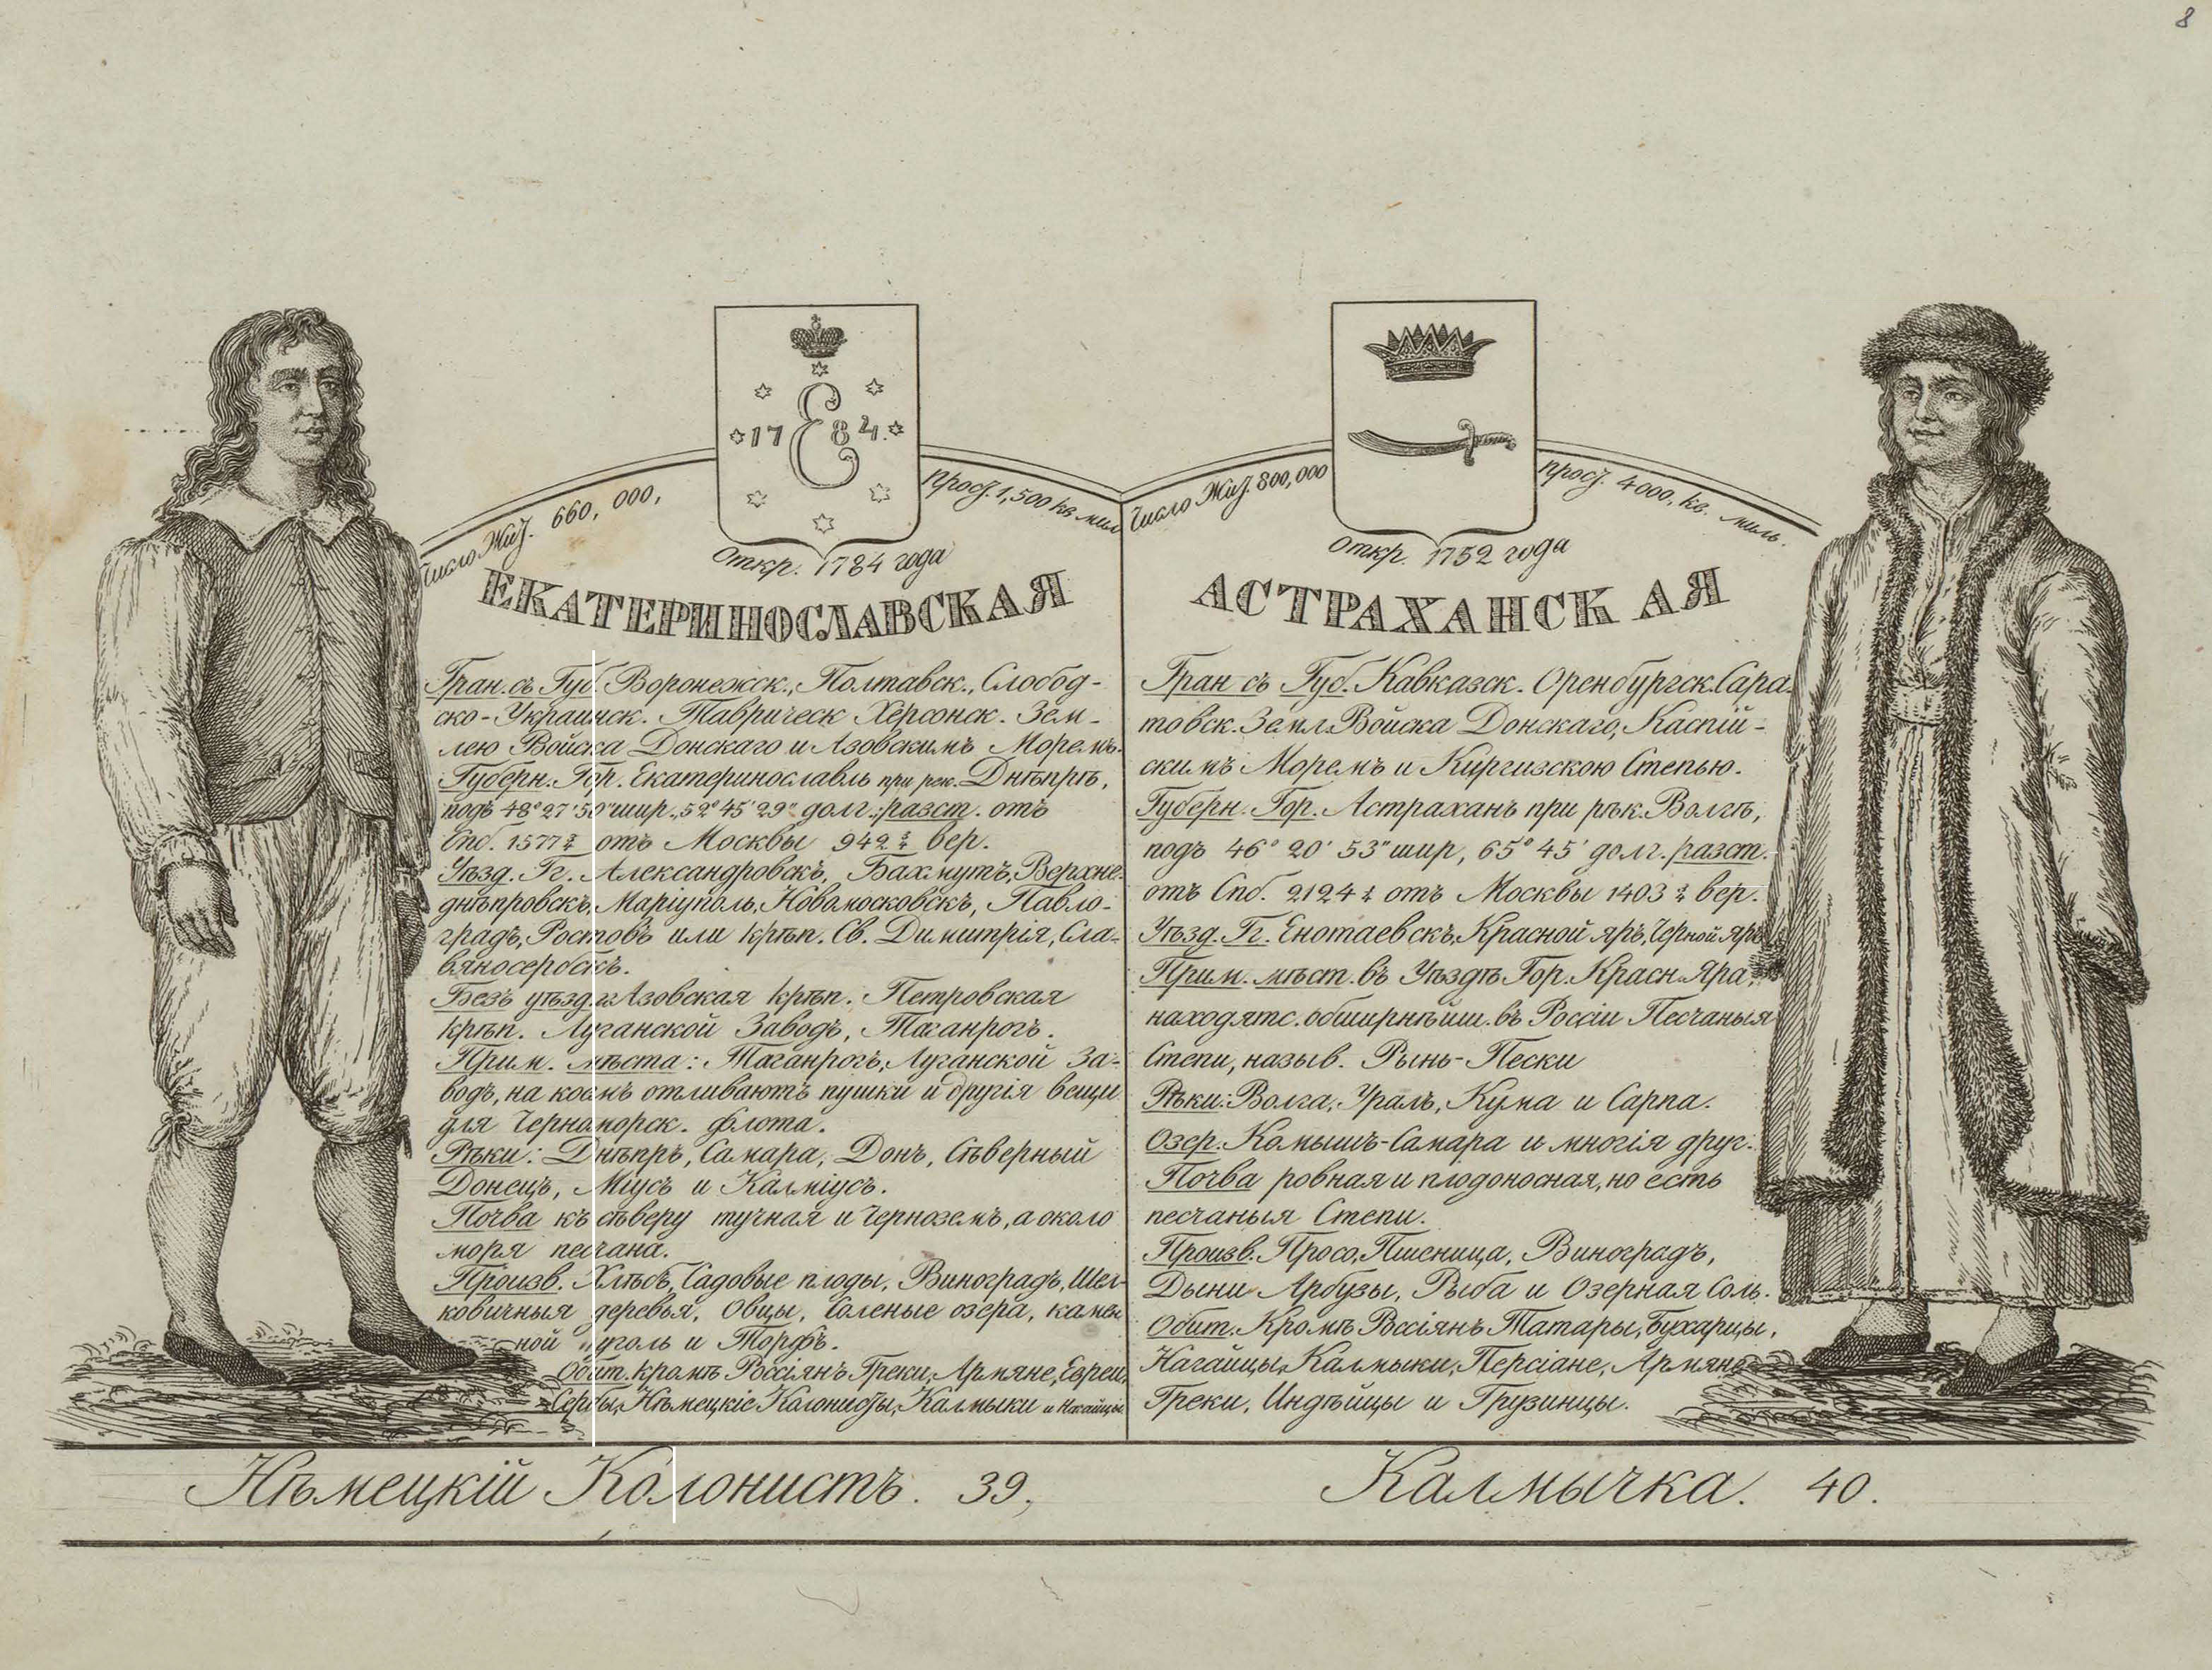 8
17 Е 84.
Число Жит. 660,000,
Прост. 1,500 кв мил
Откр. 1784 года
ЕКАТЕРИНОСЛАВСКАЯ
Гран. съ Губ. Воронежск., Полтавск., Слобод-
ско-Украинск. Таврическ Херсонск. Зем-
лею Войска Донскаго и Азовскимъ Моремъ.
Губерн. Гор. Екатеринославль при рек. Днѣпрѣ,
подъ 48° 27' 50" шир., 52° 45' 29" долг.; разст. отъ
Спб. 1577 отъ Москвы 949 вер.
Уѣзд. Гг. Александровскъ, Бахмутъ, Верхне-
днѣпровскъ, Маріуполь, Новомосковскъ, Павло-
градъ, Ростовъ или крѣп. Св. Димитрія, Сла-
вяносербскъ.
Безъ уѣзд. Азовская крѣп. Петровская
крѣп. Луганской Заводъ, Таганрогъ.
Прим. мѣста: Таганрогъ, Луганской За-
водъ, на коемъ отливаютъ пушки и другія вещи
для Черноморск. флота.
Рѣки: Днѣпръ, Самара, Донъ, Сѣверный
Донецъ, Міусъ и Калміусъ.
Почва къ сѣверу тучная и Черноземъ, а около
моря песчана.
Произв. Хлѣбъ, Садовые плоды, Виноградъ, Шел-
ковичныя деревья, Овцы, Соленые озера, камен
ной уголь и Торфъ.
Обит. кромѣ Россіянъ Греки, Армяне, Евреи,
Сербы, Нѣмецкіе Колонисты, Калмыки и Нагайцы
Нѣмецкій Колонистъ. 39,
Число Жит. 800,000
Прост. 4000, кв. миль.
Откр. 1752 года
АСТРАХАНСКАЯ
Гран съ Губ. Кавказск. Оренбургск. Сара-
товск. Земл. Войска Донскаго, Каспій-
скимъ Моремъ и Киргизскою Степью.
Губерн. Гор. Астрахань при рѣк. Волгѣ,
подъ 46° 20' 53" шир, 65° 45' долг. разст.
отъ Спб. 2124 отъ Москвы 1403 вер.
Уѣзд. Гг. Енотаевскъ, Красной яръ, Черной яръ
Прим. мѣст. въ Уѣздѣ Гор. Красн. Яра,
находятс. обширнѣиш. въ Россіи Песчаныя
Степи, назыв. Рынь-Пески
Рѣки: Волга, Уралъ, Кума и Сарпа.
Озер. Камышъ-Самара и многія друг:
Почва ровная и плодоносная, но есть
песчаныя Степи.
Произв. Просо, Пшеница, Виноградъ,
Дыни Арбузы, Рыба и Озерная Соль.
Обит. Кромѣ Россіянъ Татары, Бухарцы,
Нагайцы, Калмыки, Персіане, Армяне
Греки, Индѣйцы и Грузинцы.
Калмычка. 40.